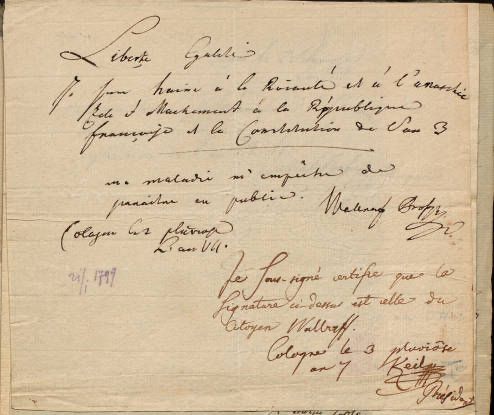 Liberté Egalité
Je jure haine à la Roiauté et à l'anarchie
Zele et Attachement à la République
françoise et la Constitution de l'an 3
ma maladie m'empêche de
paraitre au public. Wallraf Profr
Cologne le 2 pluviose
L'an VII.
21/1. 1799
Je Sous-signé certifie que la
Signature ci-dessus est celle du
Citoyen Wallraff.
Cologne le 3 pluviôse
an 7
Président